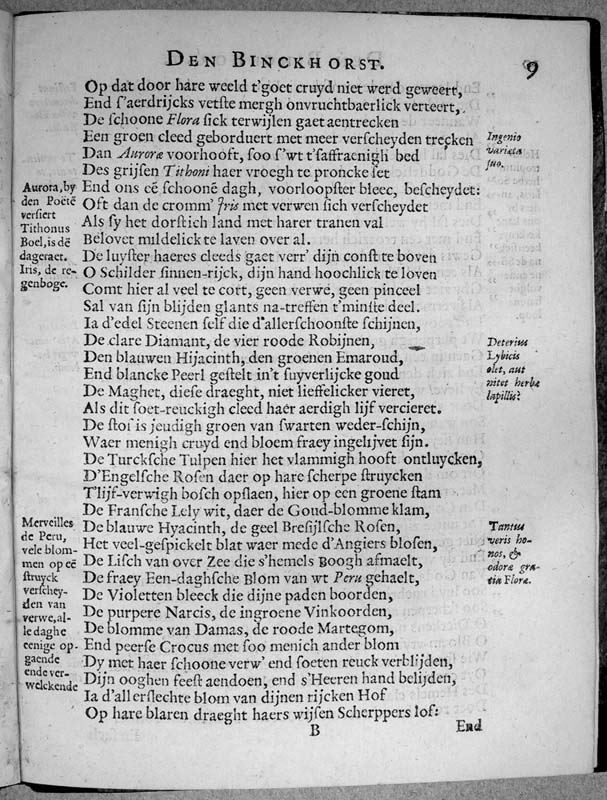 DEN BINCKHORST.
9
Op dat door hare weeld t'goet cruyd niet werd geweert,
End s'aerdrijcks vetste mergh onvruchtbaerlick verteert,
De schoone Flora sick terwijlen gaet aentrecken
Een groen cleed geborduert met meer verscheyden trecken
Dan Auroræ voorhooft, soo s'wt t'saffraenigh bed
Des grijsen Tithoni haer vroegh te proncke set
End ons eē schoonē dagh, voorloopster bleec, bescheydet:
Oft dan de cromm' Iris met verwen sich verscheydet
Als sy het dorstich land met harer tranen val
Belovet mildelick te laven over al.
De luyster haeres cleeds gaet verr' dijn const te boven
O Schilder sinnen-rijck, dijn hand hoochlick te loven
Comt hier al veel te cort, geen verwe, geen pinceel
Sal van sijn blijden glants na-treffen t'minste deel.
Ia d'edel Steenen self die d'allerschoonste schijnen,
De clare Diamant, de vier roode Robijnen,
Den blauwen Hijacinth, den groenen Emaroud,
End blancke Peerl gestelt in't suyverlijcke goud
De Maghet, diese draeght, niet lieffelicker vieret,
Als dit soet-reuckigh cleed haer aerdigh lijf vercieret.
De stof is jeudigh groen van swarten weder-schijn,
Waer menigh cruyd end bloem fraey ingelijvet sijn.
De Turcksche Tulpen hier het vlammigh hooft ontluycken,
D'Engelsche Rosen daer op hare scherpe struycken
T'lijf-verwigh bosch opslaen, hier op een groene stam
De Fransche Lely wit, daer de Goud-blomme klam,
De blauwe Hyacinth, de geel Bresijlsche Rosen,
Het veel-gespickelt blat waer mede d'Angiers blosen,
De Lisch van over Zee die s'hemels Boogh afmaelt,
De fraey Een-daghsche Blom van wt Peru gehaelt,
De Violetten bleeck die dijne paden boorden,
De purpere Narcis, de ingroene Vinkoorden,
De blomme van Damas, de roode Martegom,
End peerse Crocus met soo menich ander blom
Dy met haer schoone verw' end soeten reuck verblijden,
Dijn ooghen feest aendoen, end s'Heeren hand belijden,
Ia d'allerslechte blom van dijnen rijcken Hof
Op hare blaren draeght haers wijsen Scherppers lof:
B
End
Aurora, by
den Poëtē
versiert
Tithonus
Boel, is dē
dageraet.
Iris, de re-
genboge.
Merveilles
de Peru,
vele blom-
men op eē
struyck
verschey-
den van
verwe, al-
le daghe
eenige op-
gaende
ende ver-
welckende
Ingenio
variata
suo.
Deterius
Lybicis
olet, aut
nitet herba
lapillis?
Tantus
veris ho-
nos, &
odoræ gra-
tia Floræ.